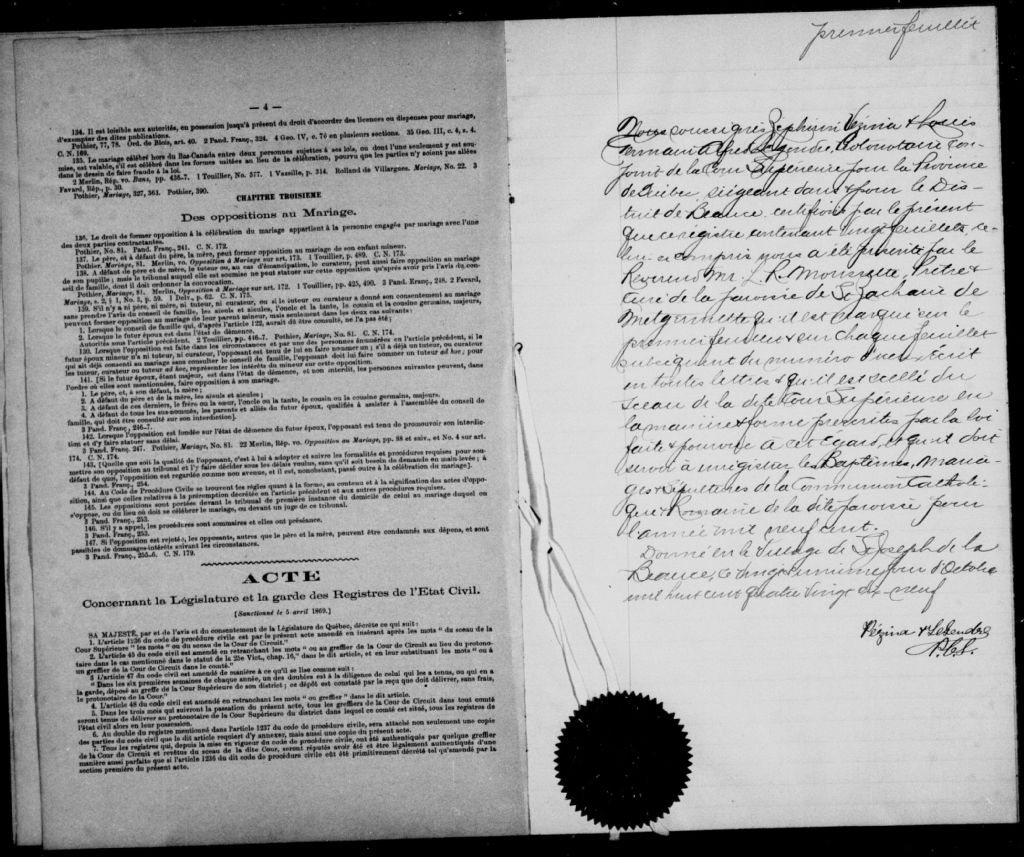 — 4 —
134. Il est loisible aux autorités, en possession jusqu'à présent du droit d'accorder des licences ou dispenses pour mariage,
d'exempter des dites publications.
Pothier, 77, 78. Ord. de Blois, art. 40. 2 Pand. Franç., 324. 4 Geo. IV, c. 76 en plusieurs sections. 35 Geo. III, c. 4, s. 4.
C. N. 169.
135. Le mariage célébré hors du Bas-Canada entre deux personnes sujettes à ses lois, ou dont l'une seulement y est sou-
mise, est valable, s'il est célébré dans les formes usitées au lieu de la célébration, pourvu que les parties n'y soient pas allées
dans le dessin de faire fraude à la loi.
2 Merlin, Rép. vo. Bans, pp. 435-7. 1 Touillier, No. 577. 1 Vazeille, p. 314. Rolland de Villargues, Mariage, No. 22. 3
Favard, Rép., p. 30.
Pothier, Mariage, 327, 361. Pothier, 390.
CHAPITRE TROISIEME
Des oppositions au Mariage.
136. Le droit de former opposition à la célébration du mariage appartient à la personne engagée par mariage avec l'une
des deux parties contractantes.
Pothier, No. 81. Pand. Franç., 241. C. N. 172.
137. Le père, et à défaut du père, la mère, peut former opposition au mariage de son enfant mineur.
Pothier, Mariage, 81. Merlin, vo. Opposition à Mariage sur art. 173. 1 Touillier, p. 489. C. N. 173.
138. A défaut de père et de mère, le tuteur ou, au cas d'émancipation, le curateur, peut aussi faire opposition au mariage
de son pupille ; mais le tribunal auquel elle est soumise ne peut statuer sur cette opposition qu'après avoir pris l'avis du con-
seil de famille, dont il doit ordonner la convocation.
Pothier, Mariage, 81. Merlin, Opposition à Mariage sur art. 172. 1 Touillier, pp. 425, 490. 3 Pand. Franç., 248. 2 Favard,
Mariage, s. 2, § 1, No. 3, p. 59. 1 Delv., p. 62. C. N. 175.
139. S'il n'y a ni père, ni mère, ni tuteur, ni curateur, ou si le tuteur ou curateur a donné son consentement au mariage
sans prendre l'avis du conseil de famille, les aïeuls et aïeules, l'oncle et la tante, le cousin et la cousine germains, majeurs,
peuvent former opposition au mariage de leur parent mineur, mais seulement dans les deux cas suivants :
1. Lorsque le conseil de famille qui, d'après l'article 122, aurait dû être consulté, ne l'a pas été ;
2. Lorsque le futur époux est dans l'état de démence.
Autorités sous l'article précédent. 2 Touillier, pp. 416-7. Pothier, Mariage, No. 81. C. N. 174.
140. Lorsque l'opposition est faite dans les circonstances et par une des personnes énumérées en l'article précédent, si le
futur époux mineur n'a ni tuteur, ni curateur, l'opposant est tenu de lui en faire nommer un ; s'il a déjà un tuteur, ou curateur
qui ait déjà consenti au mariage sans consulter le conseil de famille, l'opposant doit lui faire nommer un tuteur ad hoc ; pour
les tuteur, curateur ou tuteur ad hoc, représenter les intérêts du mineur sur cette opposition.
141. [Si le futur époux, étant majeur, est dans l'état de démence, et non interdit, les personnes suivantes peuvent, dans
l'ordre où elles sont mentionnées, faire opposition à son mariage.
1. Le père, et, à son défaut, la mère ;
2. A défaut de père et de la mère, les aïeuls et aïeules ;
3. A défaut de ces derniers, le frère ou la sœur, l'oncle ou la tante, le cousin ou la cousine germains, majeurs.
4. A défaut de tous les sus-nommés, les parents et alliés du futur époux, qualifiés à assister à l'assemblée du conseil de
famille, qui doit être consulté sur son interdiction].
3 Pand. Franç., 246-7.
142. Lorsque l'opposition est fondée sur l'état de démence du futur époux, l'opposant est tenu de promouvoir son interdic-
tion et d'y faire statuer sans délai.
3 Pand. Franç. 247. Pothier, Mariage, No. 81. 22 Merlin, Rép. vo. Opposition au Mariage, pp. 88 et suiv., et No. 4 sur art.
174. C. N. 174.
143. [Quelle que soit la qualité de l'opposant, c'est à lui à adopter et suivre les formalités et procédures requises pour sou-
mettre son opposition au tribunal et l'y faire décider sous les délais voulus, sans qu'il soit besoin de demande en main-levée ; à
défaut de quoi, l'opposition est regardée comme non avenue, et il est, nonobstant, passé outre à la célébration du mariage].
3 Pand. Franç., 254.
144. Au Code de Procédure Civile se trouvent les règles quant à la forme, au contenu et à la signification des actes d'oppo-
sition, ainsi que celles relatives à la préremption décrétée en l'article précédent et aux autres procédures requises.
145. Les oppositions sont portées devant le tribunal de première instance du domicile de celui au mariage duquel on
s'oppose, ou du lieu où doit se célébrer le mariage, ou devant un juge de ce tribunal.
3 Pand. Franç., 253.
146. S'il y a appel, les procédures sont sommaires et elles ont préséance.
3 Pand. Franç., 253.
147. Si l'opposition est rejetée, les opposants, autres que le père et la mère, peuvent être condamnés aux dépens, et sont
passibles de dommages-intérêts suivant les circonstances.
3 Pand. Franç., 255-6. C. N. 179.
ACTE
Concernant la Législature et la garde des Registres de l'Etat Civil.
[Sanctionné le 5 avril 1869.]
SA MAJESTÉ, par et de l'avis et du consentement de la Législature de Québec, décrète ce qui suit :
1. L'article 1236 du code de procédure civile est par le présent acte amendé en insérant après les mots "du sceau de la
Cour Supérieure" les mots "ou du sceau de la Cour de Circuit."
2. L'article 45 du code civil est amendé en retranchant les mots "ou au greffier de la Cour de Circuit au lieu du protono-
taire dans le cas mentionné dans le statut de la 25e Vict., chap. 16," dans le dit article, et en leur substituant les mots "ou à
un greffier de la Cour de Circuit dans le comté."
3 L'article 47 du code civil est amendé de manière à ce qu'il se lise comme suit :
"Dans les six premières semaines de chaque année, un des doubles est à la diligence de celui qui les a tenus, ou qui en a
la garde, déposé au greffe de la Cour Supérieure de son district ; ce dépôt est constaté par le reçu que doit délivrer, sans frais,
le protonotaire de la Cour."
4. L'article 48 du code civil est amendé en retranchant les mots "ou greffier" dans le dit article.
5. Dans les trois mois qui suivront la passation du présent acte, tous les greffiers de la Cour de Circuit dans tout comté
seront tenus de délivrer au protonotaire de la Cour Supérieure du district dans lequel ce comté est situé, tous les registres de
l'état civil alors en leur possession.
6. Au double du registre mentionné dans l'article 1237 du code de procédure civile, sera attaché non seulement une copie
des parties du code civil que le dit article requiert d'y annexer, mais aussi une copie du présent acte.
7. Tous les registres qui, depuis la mise en vigueur du code de procédure civile, ont été authentiqués par quelque greffier
de la Cour de Circuit et revêtus du sceau de la dite Cour, seront réputés avoir été et être légalement authentiqués d'une
manière aussi parfaite que si l'article 1236 du dit code de procédure civile eût été primitivement décrété tel qu'amendé par la
section première du présent acte.
premier feuillet
Nous soussignés Zéphirin Vézina & Louis
Germain Alfred Legendre, Protonotaire con-
joint de la Cour Supérieure pour la Province
de Québec, siégeant dans & pour le Dis-
trict de Beauce certifions par le présent
que ce registre contenant vingt feuillets ce-
lui-ci compris nous a été présenté par le
Révérend Mr. L. R. Morissette, Prêtre &
curé de la paroisse de St Zacharie de
Metgermette qu'il est marqué sur le
premier feuillet & sur chaque feuillet
subséquent du numéro d'icelui écrit
en toutes lettres & qu'il est scellé du
sceau de la dite Cour Supérieure en
la manière & forme prescrites par la loi
faite & pourvue à cet égard, & qu'il doit
servir à enregistrer les Baptêmes, Maria-
ges & Sépultures de la Communion Catholi-
que & Romaine de la dite paroisse pour
l'année mil neuf cent.
Donné en le Village de St Joseph de la
Beauce, ce vingt & unième jour d'Octobre
mil huit cent quatre vingt dix neuf
Vézina & Legendre
P.C.S.